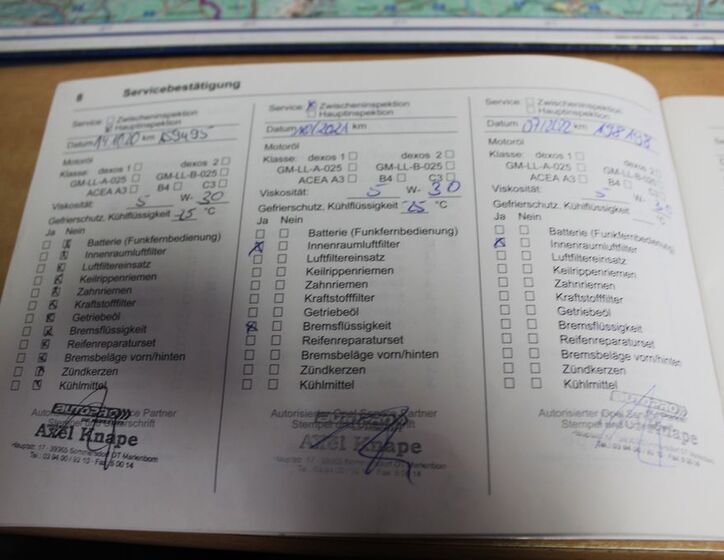 8 Servicebestätigung
Service: Zwischeninspektion
Hauptinspektion
Datum 14.10.20 km 159495
Motoröl
Klasse: dexos 1 dexos 2
GM-LL-A-025 GM-LL-B-025
ACEA A3 B4 C3
Viskosität: 5 W- 30
Gefrierschutz, Kühlflüssigkeit -25 °C
Ja Nein
Batterie (Funkfernbedienung)
Innenraumluftfilter
Luftfiltereinsatz
Keilrippenriemen
Zahnriemen
Kraftstofffilter
Getriebeöl
Bremsflüssigkeit
Reifenreparaturset
Bremsbeläge vorn/hinten
Zündkerzen
Kühlmittel
Autorisierter Opel Service Partner
Stempel und Unterschrift
Axel Knape
Service: Zwischeninspektion
Hauptinspektion
Datum 10/2021 km
Motoröl
Klasse: dexos 1 dexos 2
GM-LL-A-025 GM-LL-B-025
ACEA A3 B4 C3
Viskosität: 5 W- 30
Gefrierschutz, Kühlflüssigkeit -25 °C
Ja Nein
Batterie (Funkfernbedienung)
Innenraumluftfilter
Luftfiltereinsatz
Keilrippenriemen
Zahnriemen
Kraftstofffilter
Getriebeöl
Bremsflüssigkeit
Reifenreparaturset
Bremsbeläge vorn/hinten
Zündkerzen
Kühlmittel
Autorisierter Opel Service Partner
Stempel und Unterschrift
Axel Knape
Service: Zwischeninspektion
Hauptinspektion
Datum 07/2022 km
Motoröl
Klasse: dexos 1 dexos 2
GM-LL-A-025 GM-LL-B-025
ACEA A3 B4 C3
Viskosität: 5 W- 30
Gefrierschutz, Kühlflüssigkeit °C
Ja Nein
Batterie (Funkfernbedienung)
Innenraumluftfilter
Luftfiltereinsatz
Keilrippenriemen
Zahnriemen
Kraftstofffilter
Getriebeöl
Bremsflüssigkeit
Reifenreparaturset
Bremsbeläge vorn/hinten
Zündkerzen
Kühlmittel
Autorisierter Opel Service
Stempel und Unterschrift
Knape